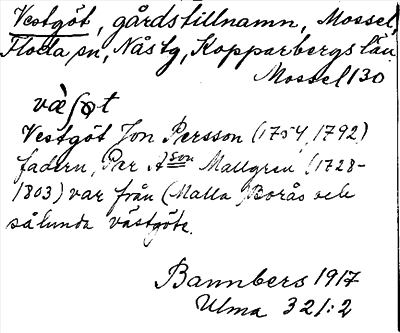 Vestgöt, gårdstillnamn, Mossel,
Floda sn, Nås tg, Kopparbergs län
Mossel 130
Vestgöt Jon Persson (1754, 1792)
fadern, Per Ason Mallgren (1728-
1803) var från (Malla Borås och
sålunda västgöte.
Bannbers 1917
Ulma 321:2